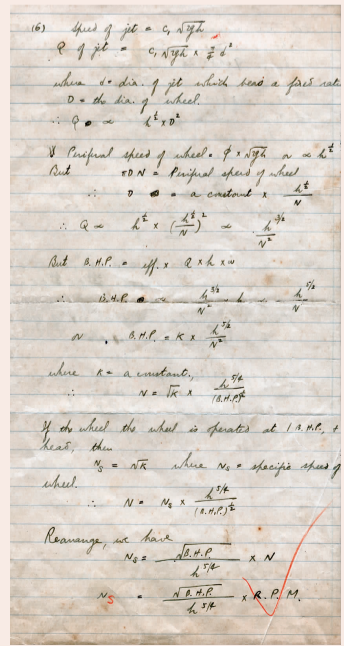 (6) Speed of jet = C, √2gh
Q of jet = C, √2gh x π/4 d²
where d = dia. of jet which bears a fixed ratio
D = the dia. of wheel.
∴ Q ∝ h^½ x D²
V Perifiral speed of wheel = φ x √2gh or ∝ h^½
But πDN = Perifiral speed of wheel
∴ D = a constant x h^½/N
∴ Q ∝ h^½ x (h^½/N)² ∝ h^3/2/N²
But B.H.P. = eff. x Q x h x w
∴ B.H.P. ∝ h^3/2/N² · h ∝ h^5/2/N²
or B.H.P. = K x h^5/2/N²
where K = a constant,
∴ N = √K x h^5/4/(B.H.P.)^½
If the wheel the wheel is operated at 1 B.H.P. +
head, then
N_s = √K where N_s = specific speed of
wheel.
∴ N = N_s x h^5/4/(B.H.P.)^½
Rearrange, we have
N_s = √B.H.P./h^5/4 x N
N_S = √B.H.P./h^5/4 x R.P.M.